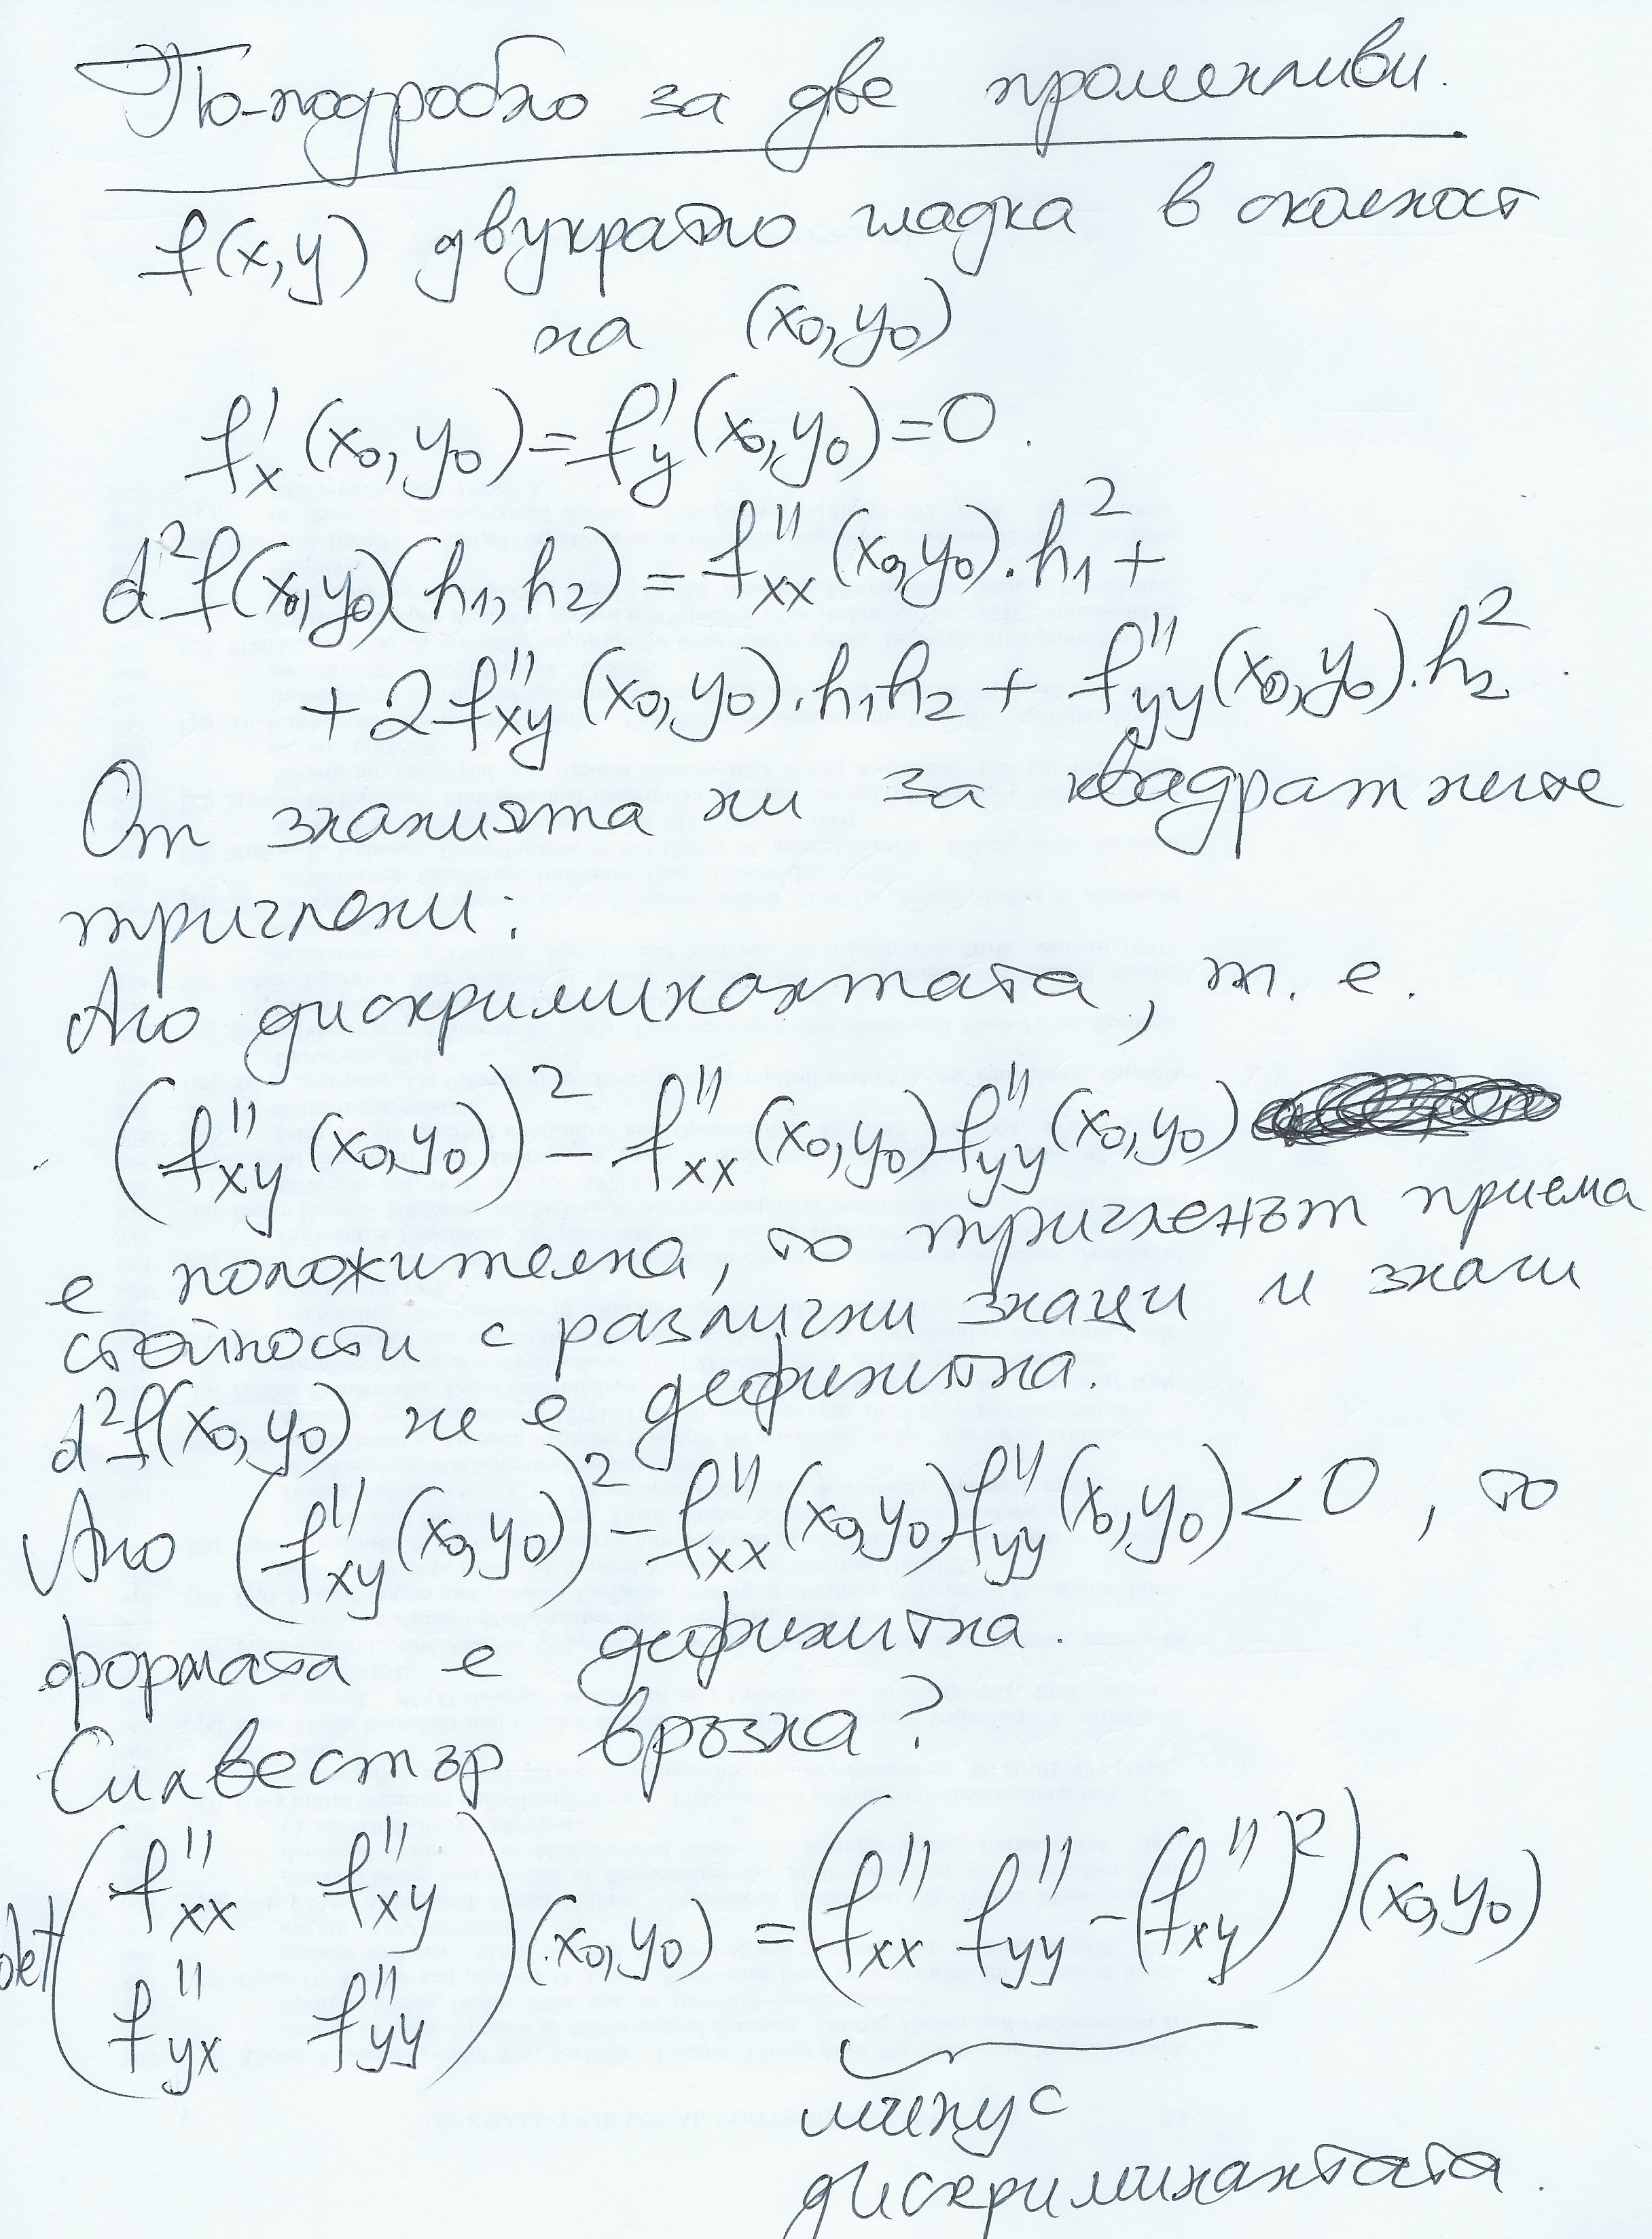 По-подробно за две променливи.
f(x,y) двукратно гладка в околност
на (x₀,y₀)
f'ₓ(x₀,y₀)=f'_y(x₀,y₀)=0.
d²f(x₀,y₀)(h₁,h₂)=f''ₓₓ(x₀,y₀).h₁²+
+2f''_xy(x₀,y₀).h₁h₂+f''_yy(x₀,y₀).h₂².
От знанията ни за квадратните
тричлени:
Ако дискриминантата, т. е.
(f''_xy(x₀,y₀))²-f''ₓₓ(x₀,y₀)f''_yy(x₀,y₀)
е положителна, то тричленът приема
стойности с различни знаци и значи
d²f(x₀,y₀) не е дефинитна.
Ако (f''_xy(x₀,y₀))²-f''ₓₓ(x₀,y₀)f''_yy(x₀,y₀)<0, то
формата е дефинитна.
Силвестър връзка?
det(f''ₓₓ f''_xy f''_yx f''_yy)(x₀,y₀)=(f''ₓₓ f''_yy-(f''_xy)²)(x₀,y₀)
минус
дискриминантата.